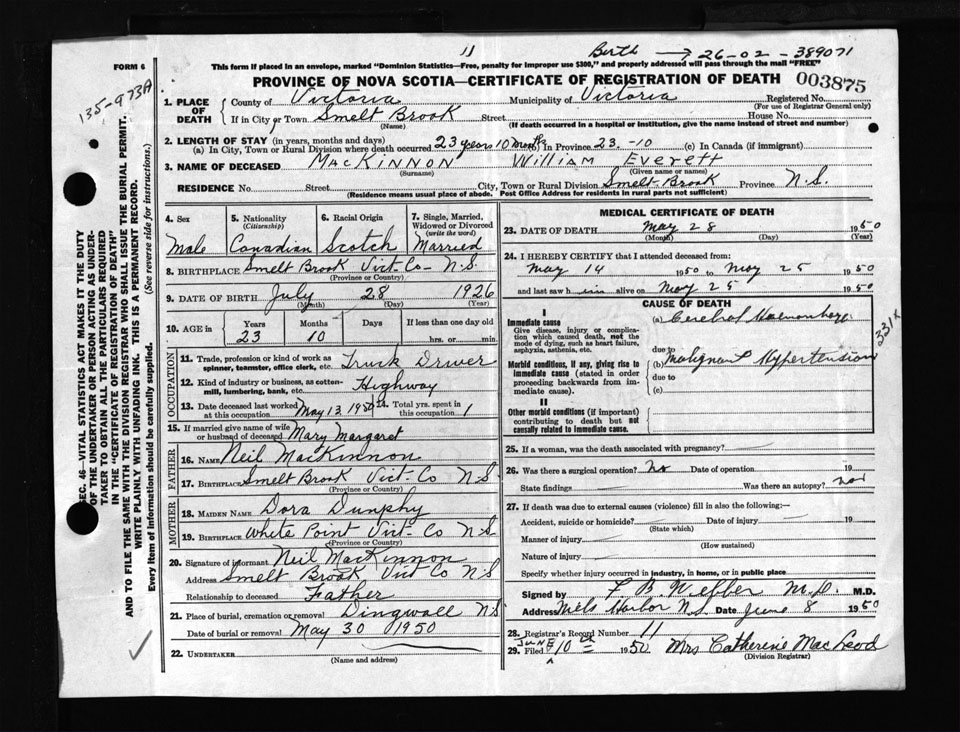 11
Birth → 26-02-389071
FORM 6
This form if placed in an envelope, marked "Dominion Statistics—Free, penalty for improper use $300," and properly addressed will pass through the mail "FREE"
PROVINCE OF NOVA SCOTIA—CERTIFICATE OF REGISTRATION OF DEATH 003875
135-973A
SEC. 46—VITAL STATISTICS ACT MAKES IT THE DUTY
OF THE UNDERTAKER OR PERSON ACTING AS UNDER-
TAKER TO OBTAIN ALL THE PARTICULARS REQUIRED
IN THE "CERTIFICATE OF REGISTRATION OF DEATH"
AND TO FILE THE SAME WITH THE DIVISION REGISTRAR WHO SHALL ISSUE THE BURIAL PERMIT.
WRITE PLAINLY WITH UNFADING INK. THIS IS A PERMANENT RECORD.
Every item of information should be carefully supplied. (See reverse side for instructions.)
1. PLACE OF DEATH { County of Victoria Municipality of Victoria Registered No.
(For use of Registrar General only)
If in City or Town Smelt Brook Street House No.
(Name) (If death occurred in a hospital or institution, give the name instead of street and number)
2. LENGTH OF STAY (in years, months and days)
(a) In City, Town or Rural Division where death occurred 23 years 10 months (b) In Province 23.-10 (c) In Canada (if immigrant)
3. NAME OF DECEASED MacKinnon William Everett
(Surname) (Given name or names)
RESIDENCE No. Street City, Town or Rural Division Smelt-Brook Province N.S.
(Residence means usual place of abode. Post Office Address for residents in rural parts not sufficient)
4. Sex
Male
5. Nationality
(Citizenship)
Canadian
6. Racial Origin
Scotch
7. Single, Married,
Widowed or Divorced
(write the word)
Married
8. BIRTHPLACE Smelt Brook Vict-Co- N-S.
(Province or Country)
9. DATE OF BIRTH July 28 1926
(Month) (Day) (Year)
10. AGE in Years Months Days If less than one day old
23 10 hrs. or min.
OCCUPATION
11. Trade, profession or kind of work as
spinner, teamster, office clerk, etc. Truck Driver
12. Kind of industry or business, as cotton-
mill, lumbering, bank, etc. Highway
13. Date deceased last worked
at this occupation May 13, 1950 14. Total yrs. spent in
this occupation 1
15. If married give name of wife
or husband of deceased Mary Margaret
FATHER
16. NAME Neil MacKinnon
17. BIRTHPLACE Smelt Brook Vict-Co N-S
(Province or Country)
MOTHER
18. MAIDEN NAME Dora Dunphy
19. BIRTHPLACE White Point Vict-Co N-S
(Province or Country)
20. Signature of informant Neil MacKinnon
Address Smelt Brook Vict Co N-S
Relationship to deceased Father
21. Place of burial, cremation or removal Dingwall N-S
Date of burial or removal May 30 1950
22. UNDERTAKER
(Name and address)
MEDICAL CERTIFICATE OF DEATH
23. DATE OF DEATH May 28 1950
(Month) (Day) (Year)
24. I HEREBY CERTIFY that I attended deceased from:
May 14 1950 to May 25 1950
and last saw him alive on May 25 1950
CAUSE OF DEATH
I
Immediate cause
Give disease, injury or complica-
tion which caused death, not the
mode of dying, such as heart failure,
asphyxia, asthenia, etc.
(a) Cerebral Haemorrhage
331X
due to
Morbid conditions, if any, giving rise to
immediate cause (stated in order
proceeding backwards from im-
mediate cause).
(b) Malignant Hypertension
due to
(c)
II
Other morbid conditions (if important)
contributing to death but not
causally related to immediate cause.
25. If a woman, was the death associated with pregnancy?
26. Was there a surgical operation? no Date of operation 19
State findings Was there an autopsy? no
27. If death was due to external causes (violence) fill in also the following:—
Accident, suicide or homicide? Date of injury 19
(State which)
Manner of injury
(How sustained)
Nature of injury
Specify whether injury occurred in industry, in home, or in public place
Signed by F. B. Webber M.D. M.D.
Address Neils Harbor N.S. Date June 8 1950
28. Registrar's Record Number 11
29. Filed JUNE 10th 1950 Mrs Catherine MacLeod
(Division Registrar)